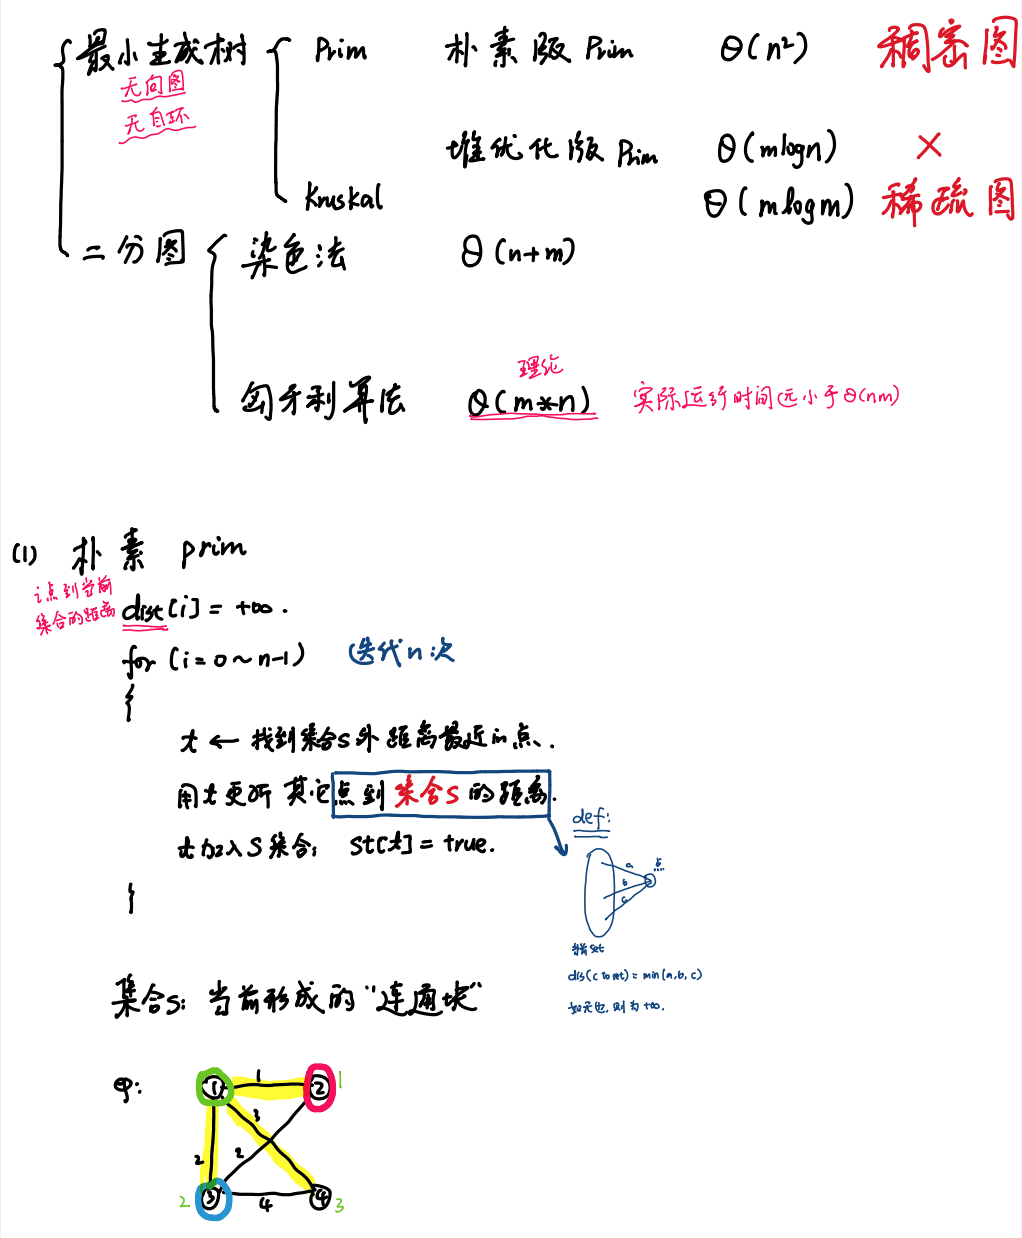 最小生成树 Prim 朴素版Prim Θ(n²) 稠密图
无向图
无自环
堆优化版Prim Θ(mlogn) ×
Kruskal Θ(mlogm) 稀疏图
二分图 染色法 Θ(n+m)
理论
匈牙利算法 Θ(m*n) 实际运行时间远小于Θ(nm)
(1) 朴素 prim
i点到当前
集合的距离
dist[i] = +∞.
for (i = 0 ~ n-1) 迭代n次
{
t ← 找到集合S外距离最近的点.
用t更新其它点到集合S的距离.
t加入S集合; st[t] = true.
}
def:
a
b
c
点
当前set
dis(c to set) = min(a, b, c)
如无边, 则为 +∞.
集合S: 当前形成的"连通块"
即:
1 1 2 1
3
2 2
2 3 4 4 3